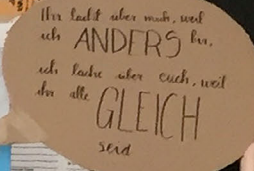 Ihr lacht über mich, weil
ich ANDERS bin,
ich lache über euch, weil
ihr alle GLEICH
seid